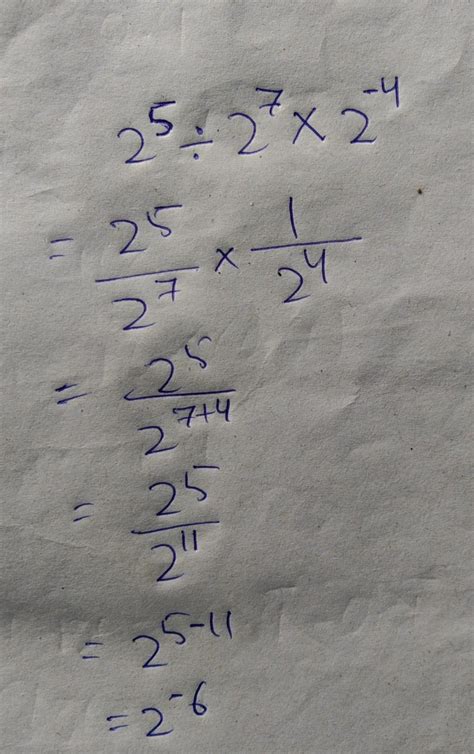 2⁵ ÷ 2⁷ × 2⁻⁴
= 2⁵/2⁷ × 1/2⁴
= 2⁵/2⁷⁺⁴
= 2⁵/2¹¹
= 2⁵⁻¹¹
= 2⁻⁶